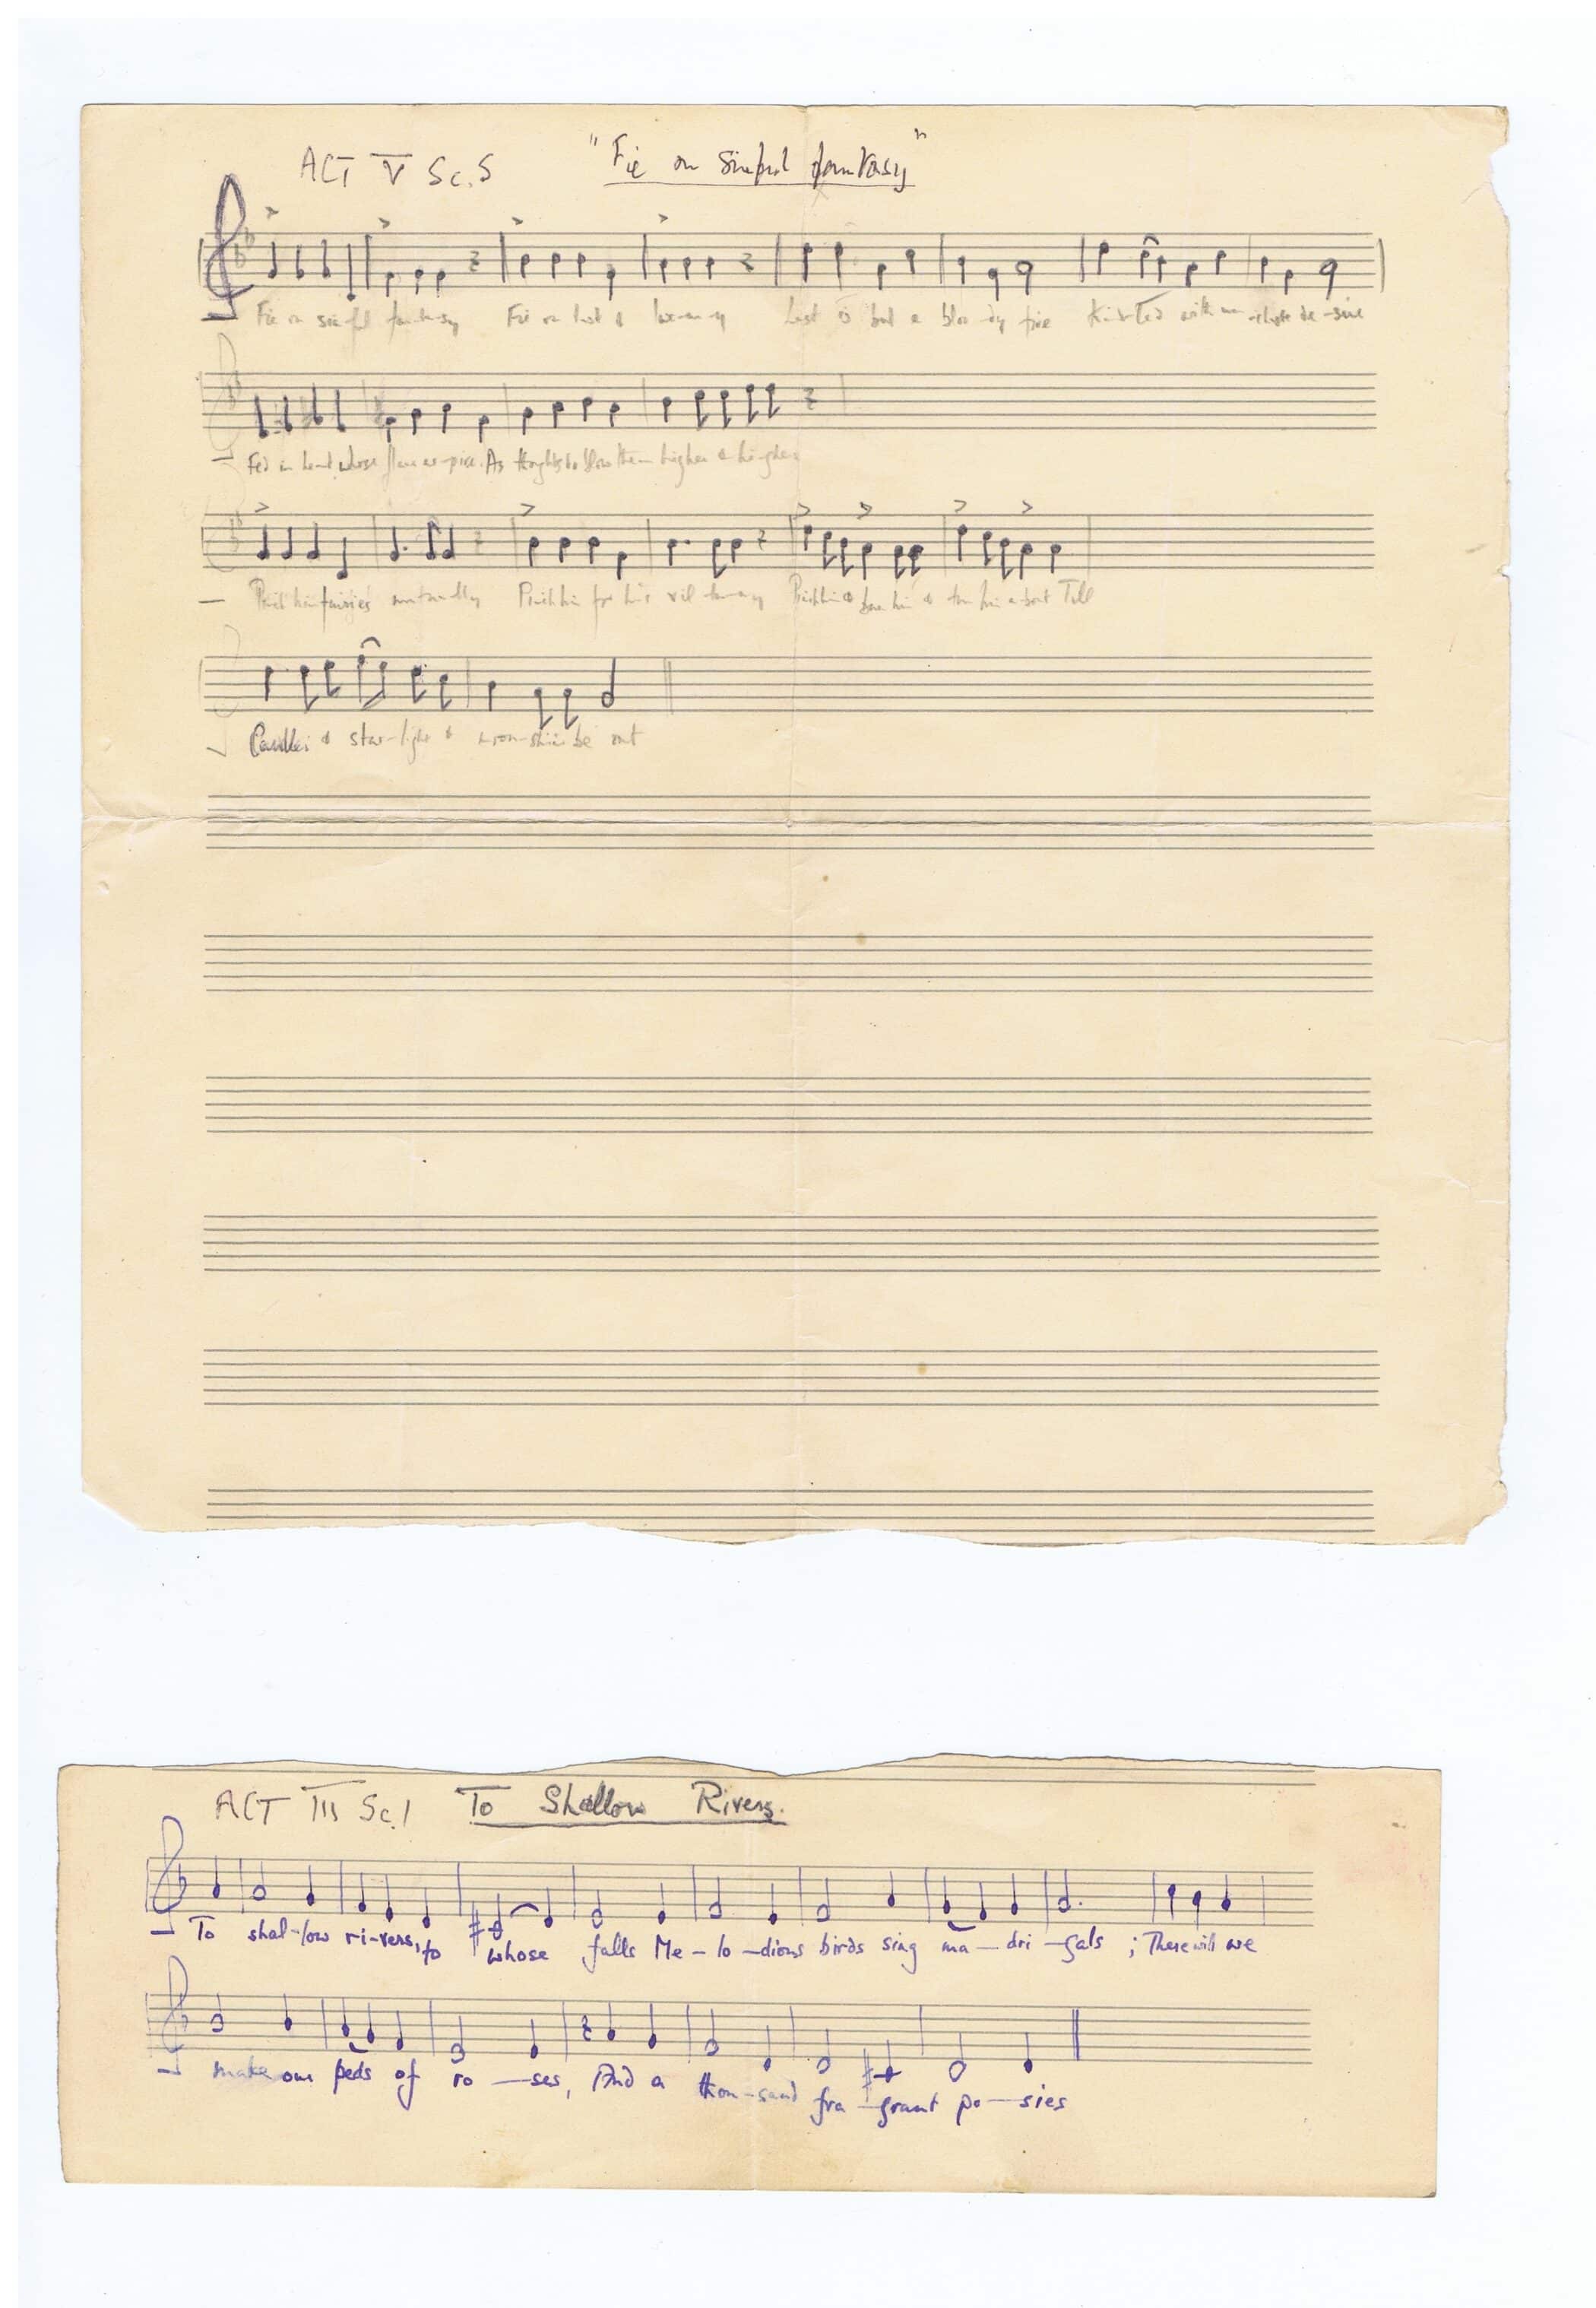 ACT V Sc. 5 "Fie on sinful fantasy"
Fie on sin-ful fan-ta-sy Fie on lust & lux-u-ry Lust is but a bloo-dy fire Kind-led with un-chaste de-sire
Fed in heart whose flame as-pire. As thoughts do blow them higher & higher
Pinch him fairies mutually Pinch him for his vil-lan-y Pinch him & burn him & turn him a-bout Till
Candles & star-light & moon-shine be out
ACT III Sc. 1 To Shallow Rivers.
To shal-low ri-vers, to whose falls Me-lo-dious birds sing ma-dri-gals; There will we
make our peds of ro-ses, And a thou-sand fra-grant po-sies